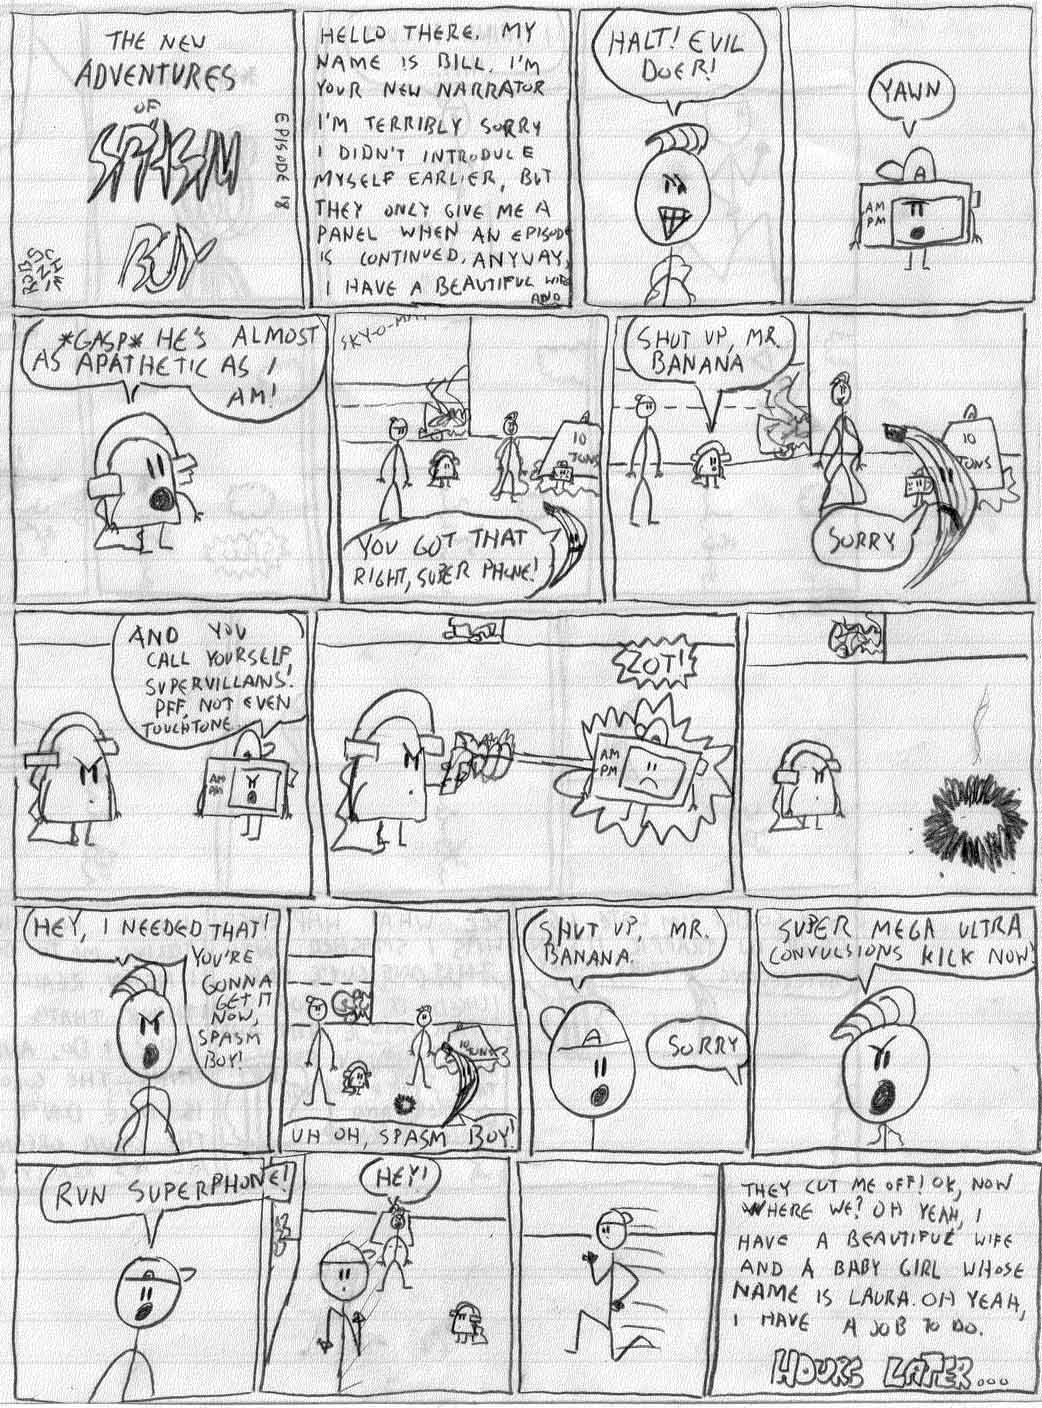 THE NEW
ADVENTURES
OF
SPASM
BOY
EPISODE 18
HELLO THERE, MY
NAME IS BILL. I'M
YOUR NEW NARRATOR
I'M TERRIBLY SORRY
I DIDN'T INTRODUCE
MYSELF EARLIER, BUT
THEY ONLY GIVE ME A
PANEL WHEN AN EPISODE
IS CONTINUED. ANYWAY,
I HAVE A BEAUTIFUL WIFE
AND
HALT! EVIL
DOER!
YAWN
A
AM
PM
*GASP* HE'S ALMOST
AS APATHETIC AS I
AM!
SKY-O-MAT
10
TONS
YOU GOT THAT
RIGHT, SUPER PHONE!
SHUT UP, MR.
BANANA
10
TONS
SORRY
AND YOU
CALL YOURSELF
SUPERVILLAINS!
PFF, NOT EVEN
TOUCHTONE
AM
PM
ZOT!
AM
PM
HEY, I NEEDED THAT!
YOU'RE
GONNA
GET IT
NOW,
SPASM
BOY!
10
TONS
UH OH, SPASM BOY!
SHUT UP, MR.
BANANA.
A
SORRY
SUPER MEGA ULTRA
CONVULSIONS KICK NOW
RUN SUPERPHONE!
HEY!
THEY CUT ME OFF! OK, NOW
WHERE WE? OH YEAH, I
HAVE A BEAUTIFUL WIFE
AND A BABY GIRL WHOSE
NAME IS LAURA. OH YEAH,
I HAVE A JOB TO DO.
HOURS LATER...